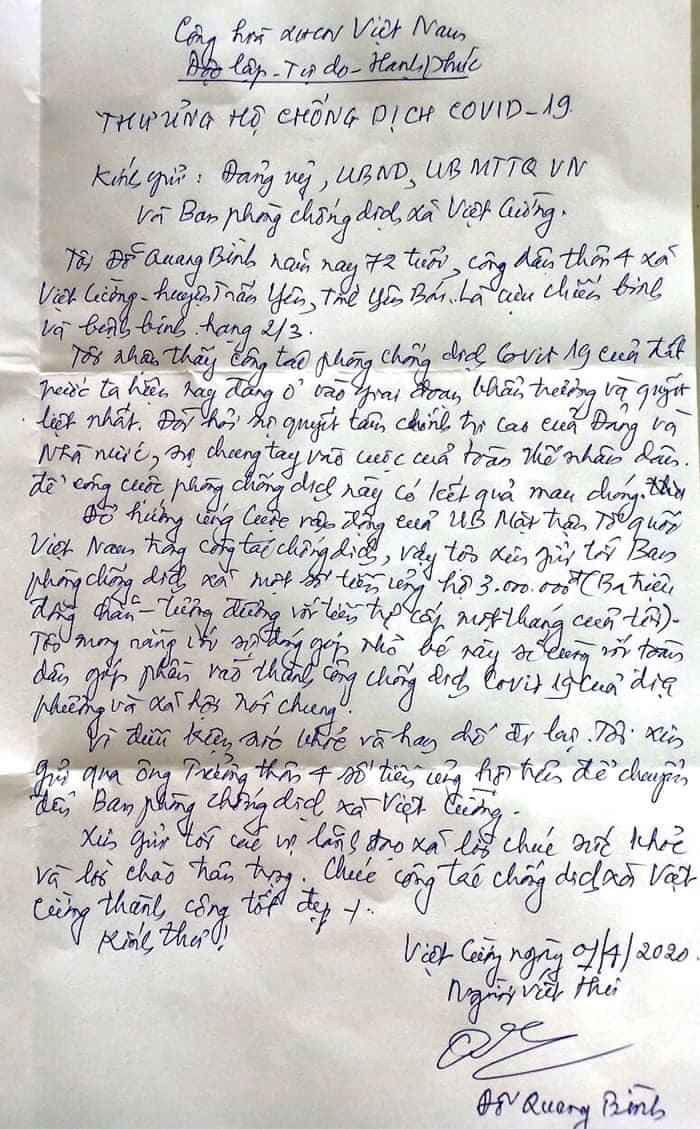 Công hoà XHCN Việt Nam
Độc lập - Tự do - Hạnh phúc
THƯ ỦNG HỘ CHỐNG DỊCH COVID-19
Kính gửi: Đảng uỷ, UBND, UB MTTQ VN
Và Ban phòng chống dịch xã Việt Cường.
Tôi Đỗ Quang Bình năm nay 72 tuổi, công dân thôn 4 xã
Việt Cường - huyện Trấn Yên, tỉnh Yên Bái. Là cựu chiến binh
và bệnh binh hạng 2/3.
Tôi nhận thấy công tác phòng chống dịch Covit 19 của đất
nước ta hiện nay đang ở vào giai đoạn khẩn trương và quyết
liệt nhất. Đòi hỏi sự quyết tâm chính trị cao của Đảng và
Nhà nước, sự chung tay vào cuộc của toàn thể nhân dân.
để công cuộc phòng chống dịch này có kết quả mau chóng.
Để hưởng ứng cuộc vận động của UB Mặt trận Tổ quốc
Việt Nam trong công tác chống dịch, vậy tôi xin gửi tới Ban
phòng chống dịch xã một số tiền ủng hộ 3.000.000đ (Ba triệu
đồng chẵn - tương đương với tiền trợ cấp một tháng của tôi)-
Tôi mong rằng với sự đóng góp nhỏ bé này sẽ cùng với toàn
dân góp phần vào thành công chống dịch Covit 19 của địa
phương và xã hội nói chung.
Vì điều kiện sức khoẻ và hạn chế đi lại. Tôi xin
gửi qua ông Trưởng thôn 4 số tiền ủng hộ trên để chuyển
đến Ban phòng chống dịch xã Việt Cường.
Xin gửi tới các vị lãnh đạo xã lời chúc sức khoẻ
và lời chào trân trọng. Chúc công tác chống dịch xã Việt
Cường thành công tốt đẹp
Kính thư!
Việt Cường ngày /4/2020
Người viết thư
Đỗ Quang Bình